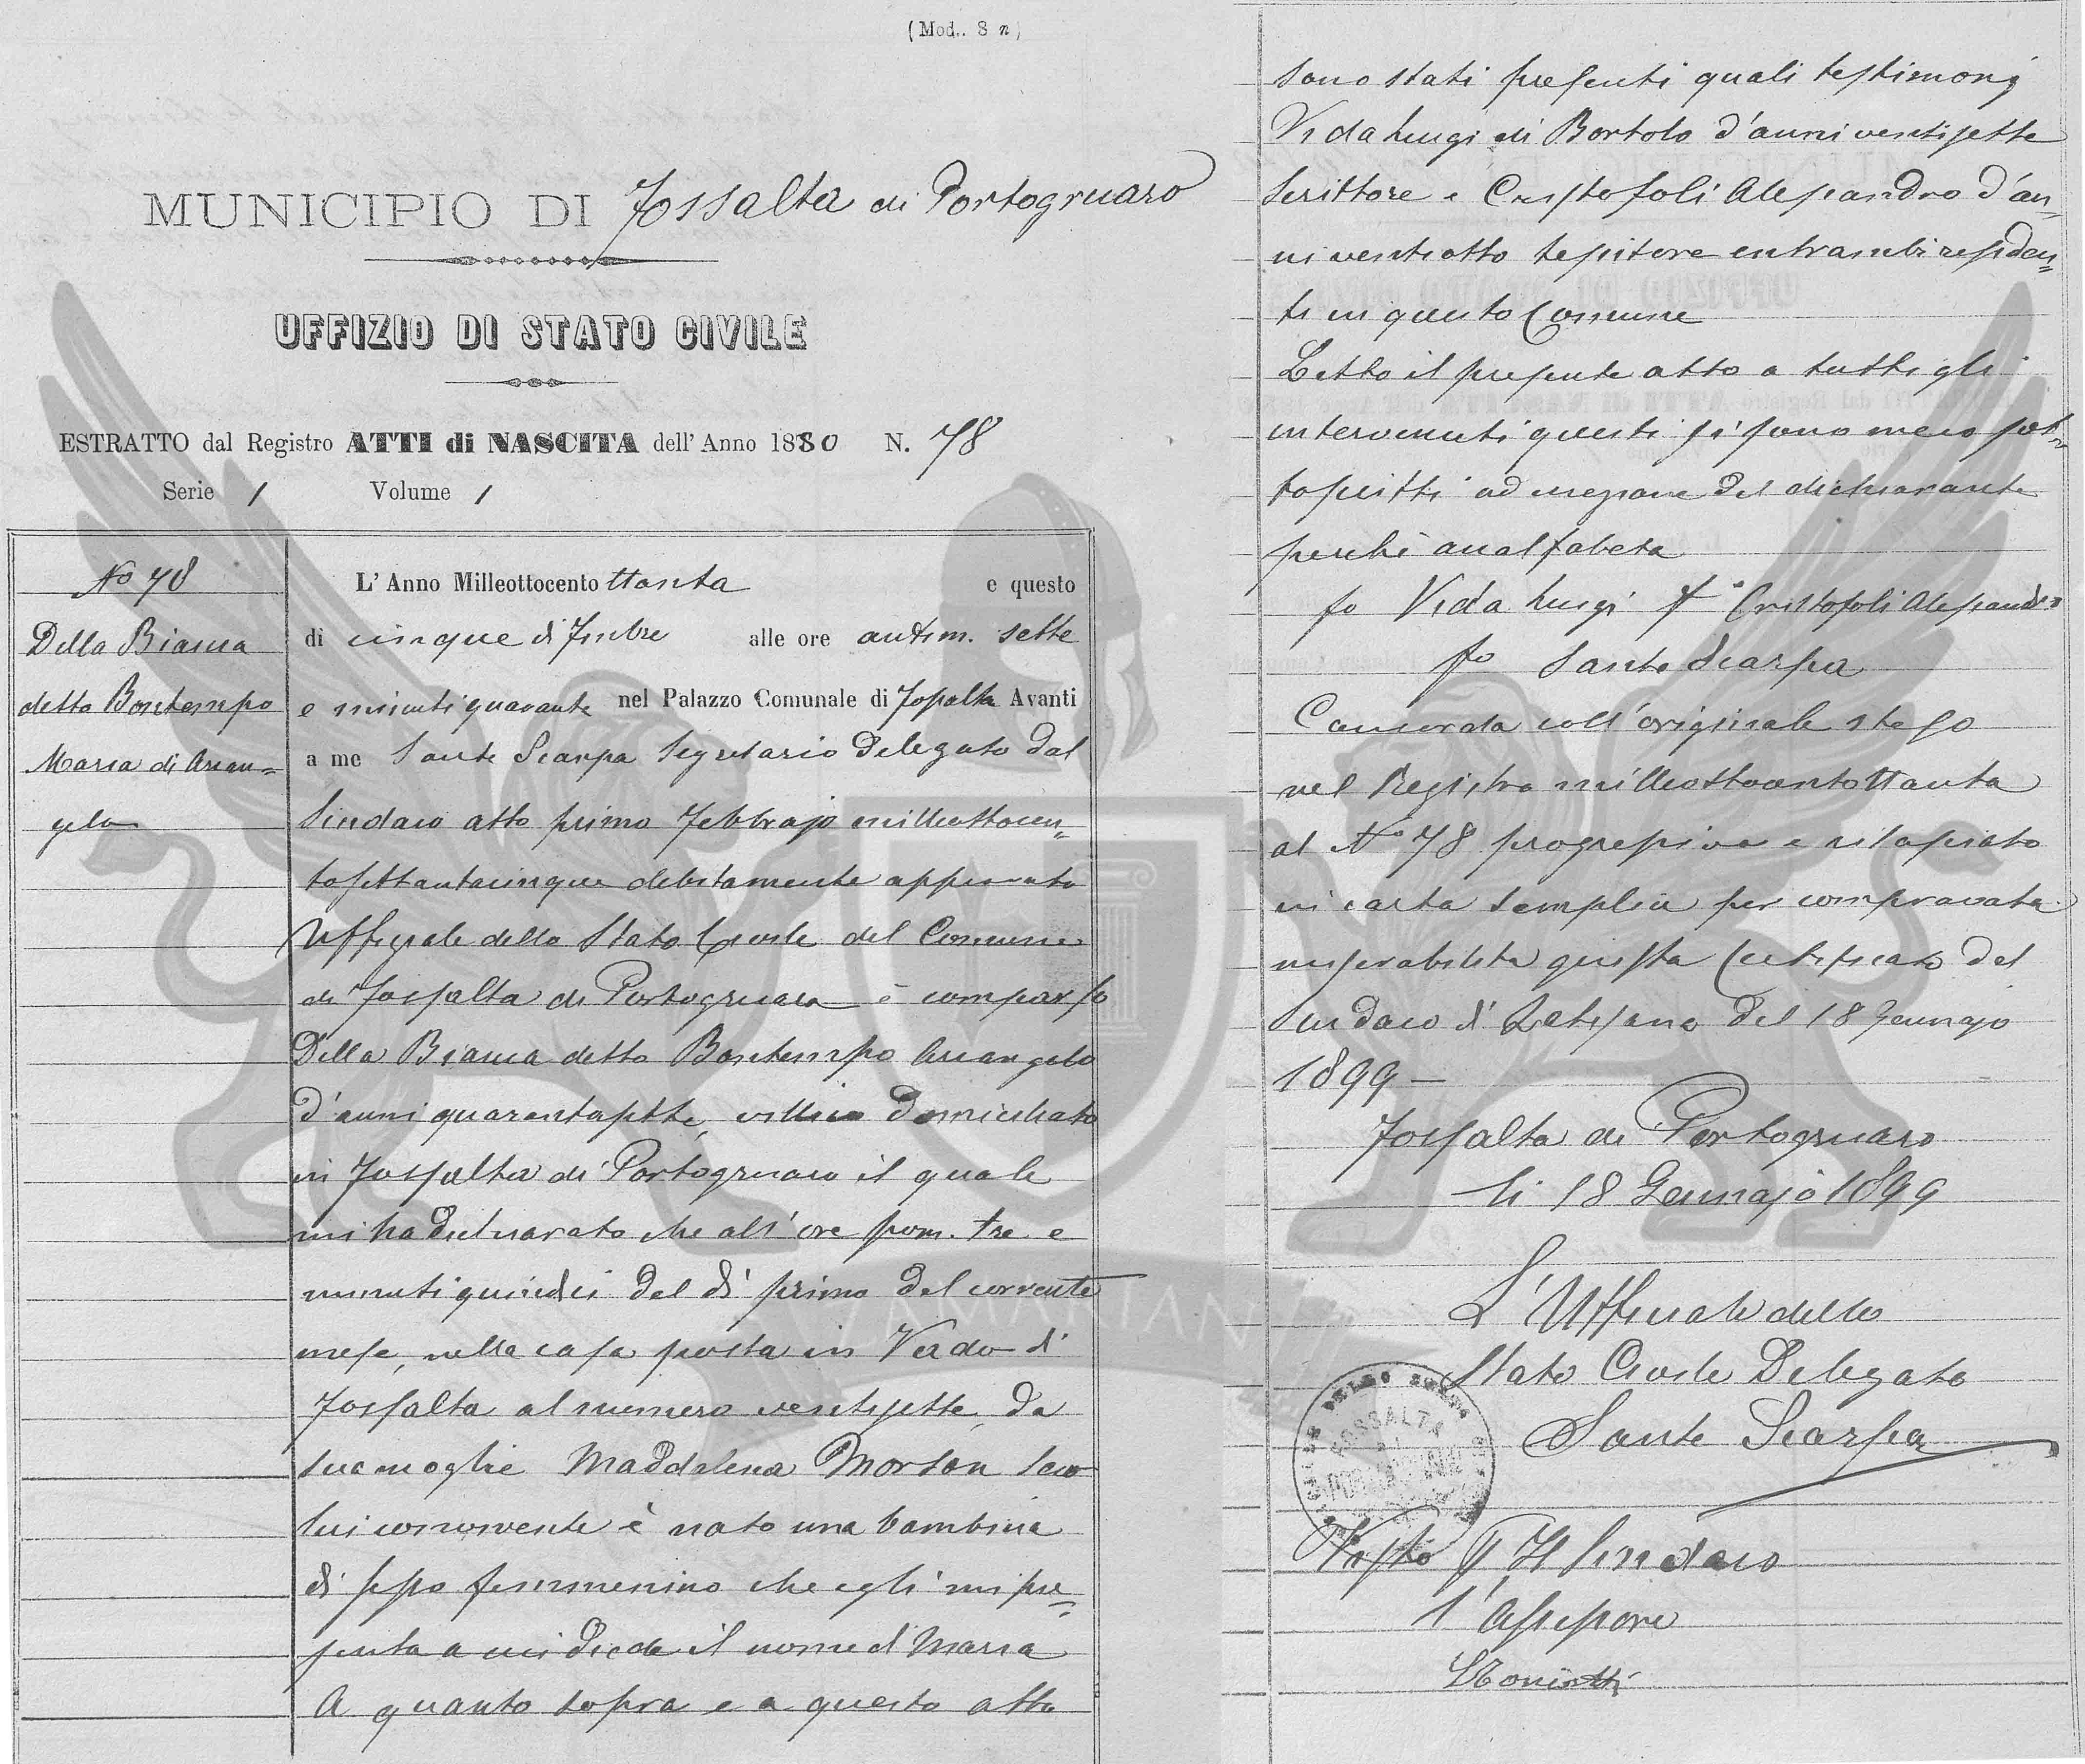 (Mod. 8 n)
MUNICIPIO DI Fossalta di Portogruaro
UFFIZIO DI STATO CIVILE
ESTRATTO dal Registro ATTI di NASCITA dell' Anno 1880 N. 78
Serie 1 Volume 1
No 78
Della Bianca
detto Bontempo
Maria di Arcan=
gelo
L' Anno Milleottocento ttanta e questo
di cinque di 7mbre alle ore antim. sette
e minuti quaranta nel Palazzo Comunale di Fossalta Avanti
a me Sante Scarpa Segretario Delegato dal
Sindaco atto primo Febbrajo milleottocen=
tosettantacinque debitamente approvato
Uffiziale dello Stato Civile del Comune
di Fossalta di Portogruaro è comparso
Della Bianca detto Bontempo Arcangelo
d'anni quarantasette, villico domiciliato
in Fossalta di Portogruaro il quale
mi ha dichiarato che all'ore pom. tre e
minuti quindici del dì primo del corrente
mese, nella casa posta in di
Fossalta al numero ventisette, da
sua moglie Maddalena Morson seco
lui convivente è nato una bambina
di sesso femmenino che egli mi pre=
senta a cui diede il nome di Maria
A quanto sopra e a questo atto
sono stati presenti quali testimonj
Vida Luigi di Bortolo d'anni ventisette
Scrittore e Cristofoli Alessandro d'an=
ni ventiotto tessitore entrambi residen=
ti in questo Comune
Letto il presente atto a tutti gli
intervenuti questi si sono meco sot=
toscritti ad eccezione del dichiarante
perchè analfabeta
fo Vida Luigi fo Cristofoli Alessandro
fo Sante Scarpa
Concorda coll'originale steso
nel Registro milleottocentottanta
al No 78 progressivo e rilasciato
in carta semplice per comprovata
miserabilità giusta Certificato del
Sindaco di Latisana del 18 Gennajo
1899 -
Fossalta di Portogruaro
li 18 Gennajo 1899
L'Ufficiale dello
Stato Civile Delegato
Sante Scarpa
FOSSALTA
DI
PORTOGRUARO
Visto Il Sindaco
l'Assessore